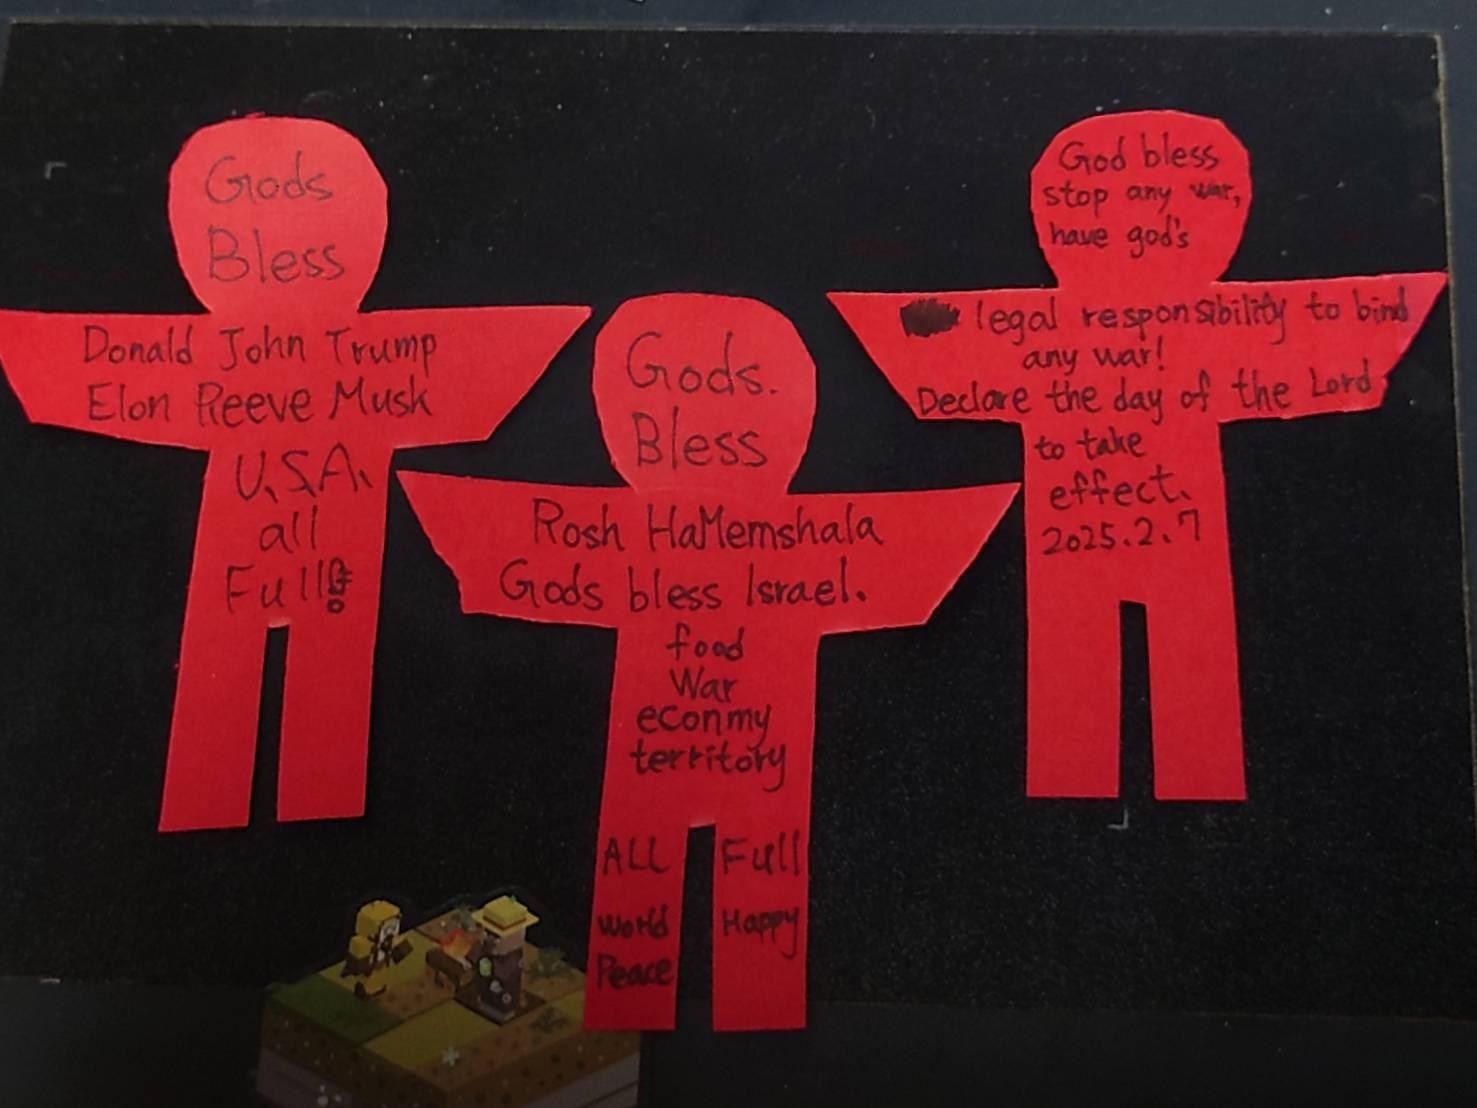 Gods
Bless
Donald John Trump
Elon Reeve Musk
U.S.A.
all
Full
Gods.
Bless
Rosh HaMemshala
Gods bless Israel.
food
War
econmy
territory
ALL Full
World Happy
Peace
God bless
stop any war,
have god's
legal responsibility to bind
any war!
Declare the day of the Lord
to take
effect.
2025.2.7